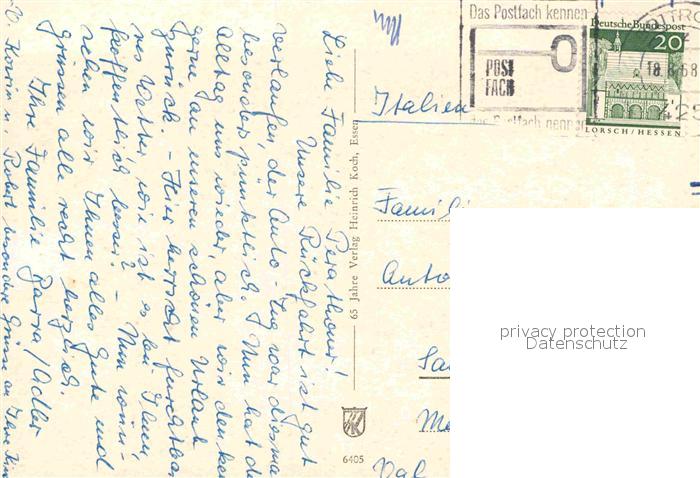 Liebe Familie Perathoner!
Unsere Rückfahrt ist gut
verlaufen, der Auto-Zug war diesma
besonders pünktlich. Nun hat d
Alltag uns wieder, aber wir denke
gerne an unseren schönen Urlaub
zurück. - Hier herrscht furchtba
res Wetter, wie ist es bei Ihnen,
hoffentlich besser? - Nun wün-
schen wir Ihnen alles Gute und
grüssen alle recht herzlich.
Ihre Familie /Adler
Robert besondere Grüsse an Ihre
65 Jahre Verlag Heinrich Koch, Essen
6405
Das Postfach kennen
POST
FACH
das Postfach nennen
Deutsche Bundespost
20
LORSCH/HESSEN
18.8.68
Italien
Famili
Anto
Sa
Me
Val
privacy protection
Datenschutz